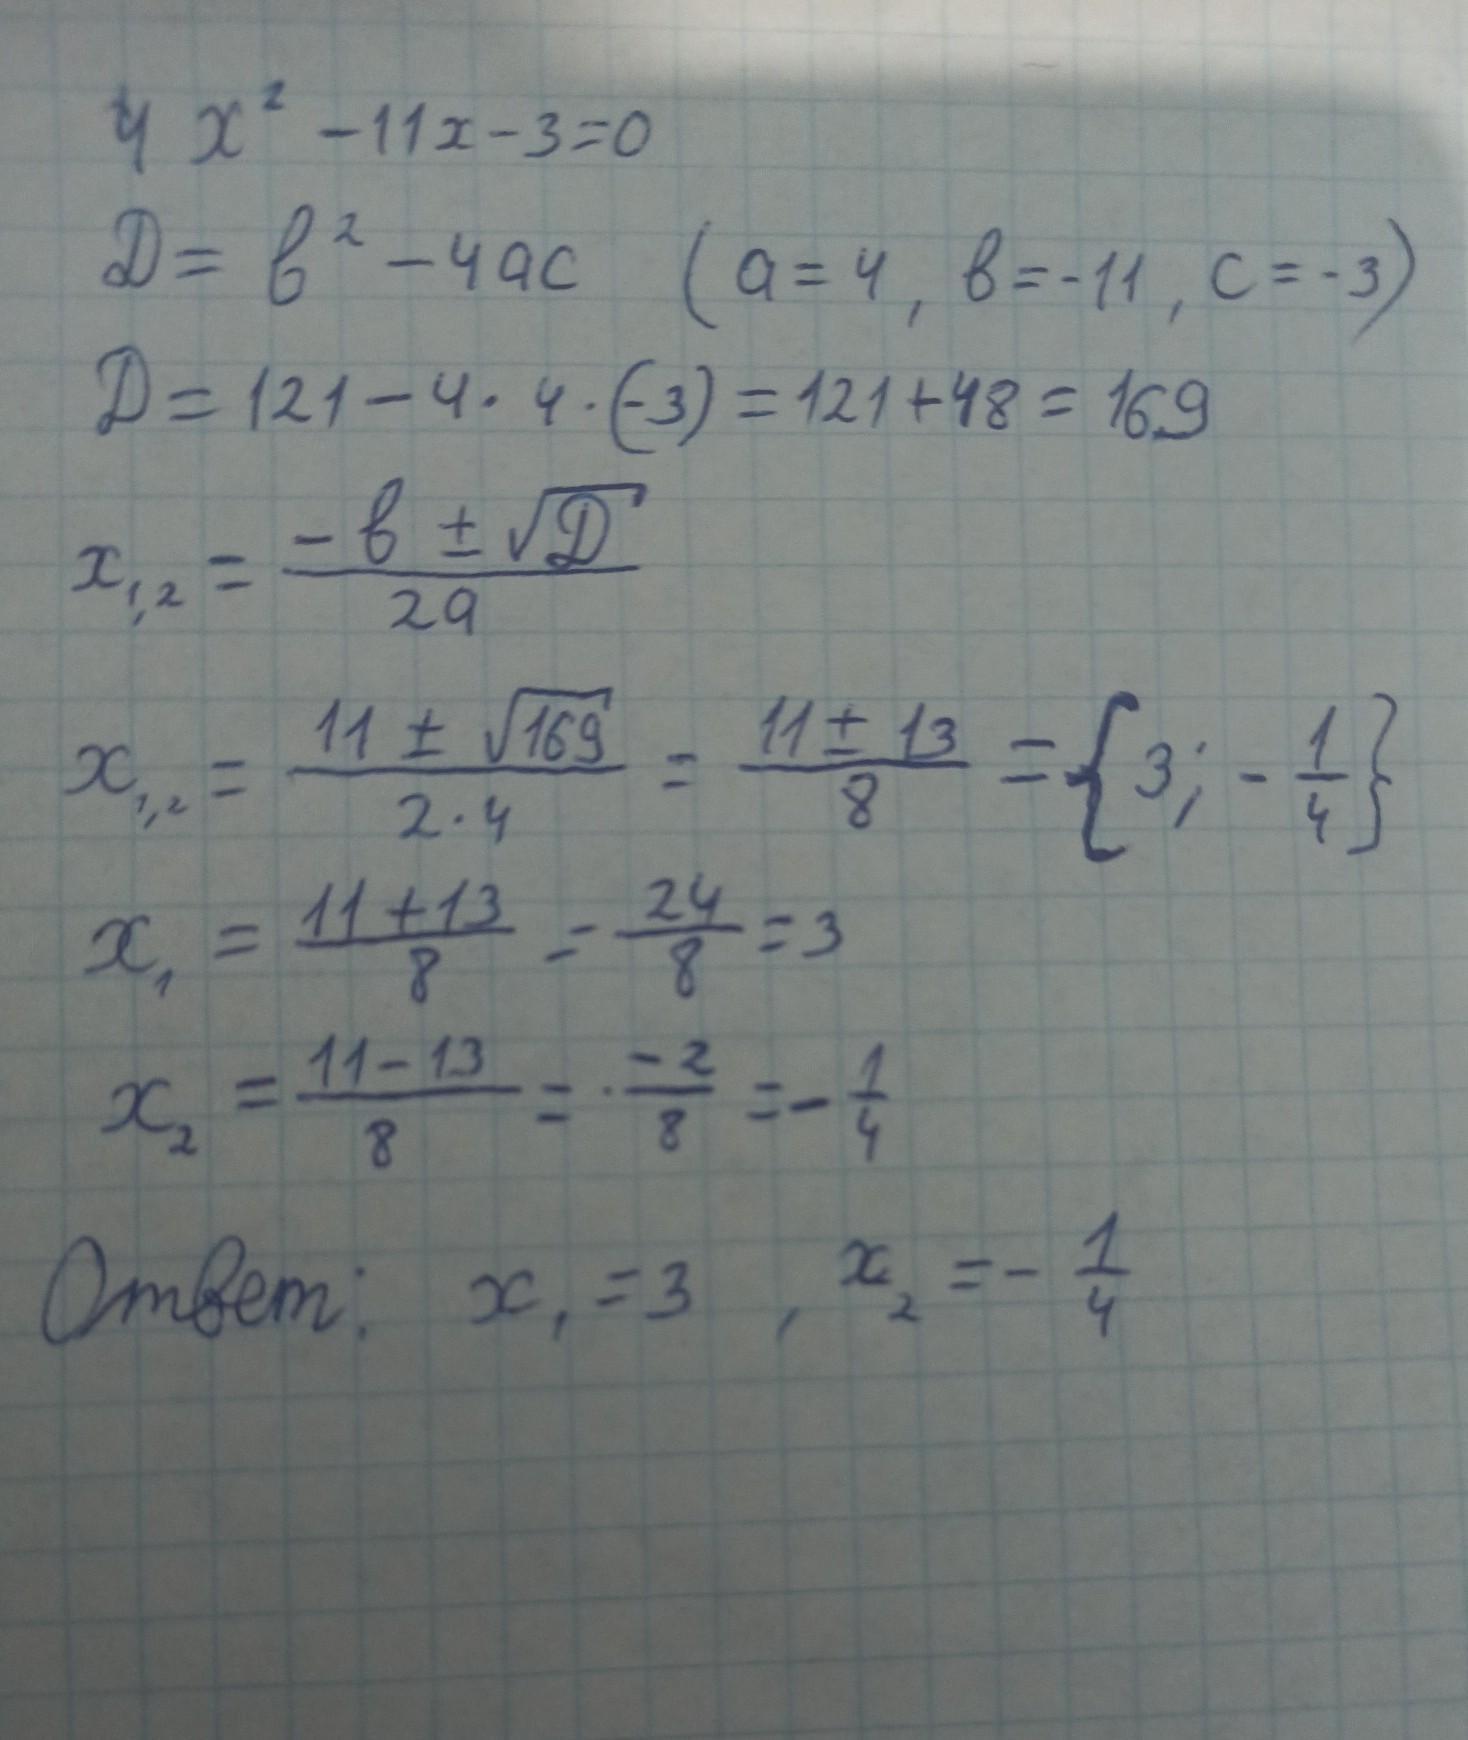 4x² - 11x - 3 = 0
D = в² - 4ac (a = 4, в = -11, c = -3)
D = 121 - 4 · 4 · (-3) = 121 + 48 = 169
x₁,₂ = (-в ± √D) / 2a
x₁,₂ = (11 ± √169) / (2 · 4) = (11 ± 13) / 8 = {3; -1/4}
x₁ = (11 + 13) / 8 = 24/8 = 3
x₂ = (11 - 13) / 8 = -2/8 = -1/4
Ответ: x₁ = 3, x₂ = -1/4